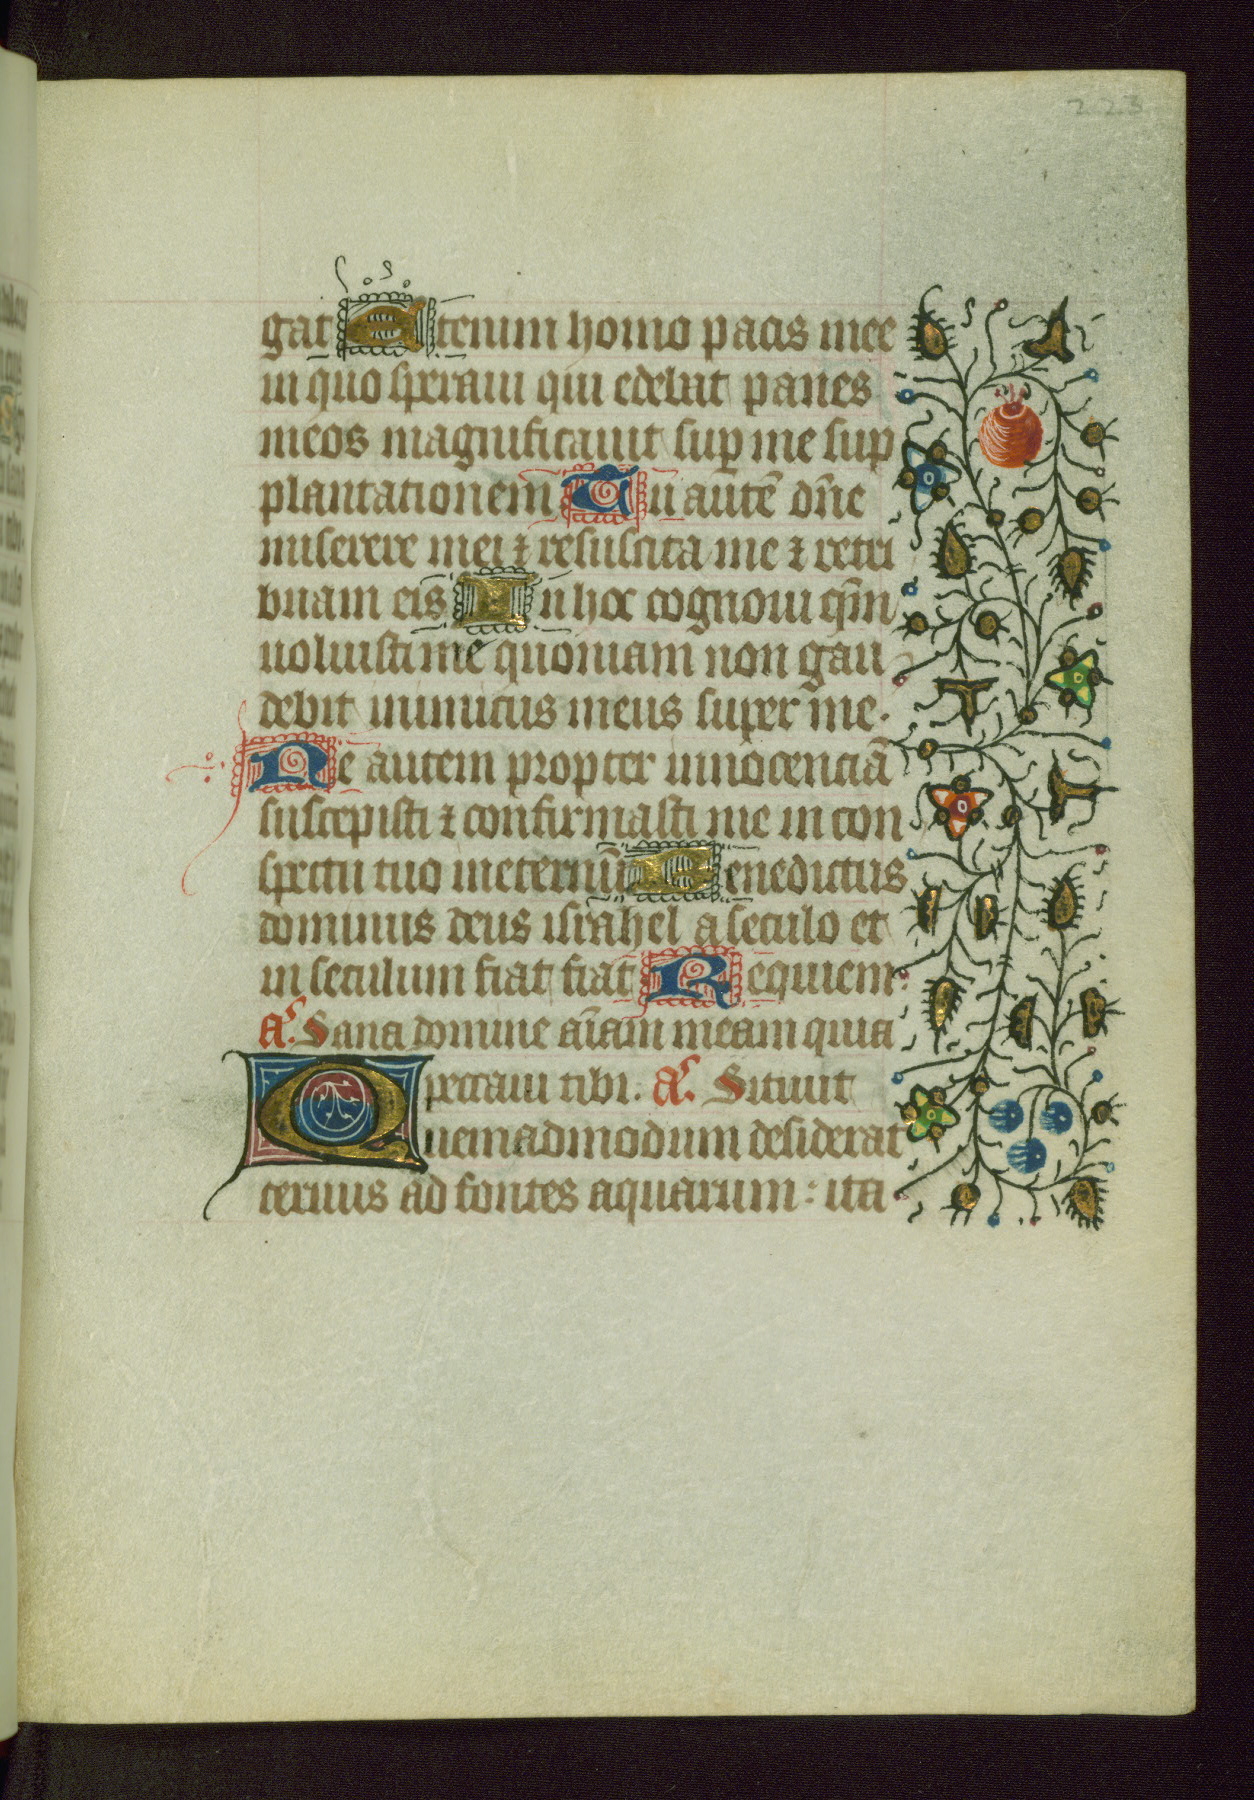 223
gat Etenim homo pacis mee
in quo speraui qui edebat panes
meos magnificauit sup me sup
plantationem Tu autē dn̄e
miserere mei ⁊ resuscita me ⁊ retri
buam eis In hoc cognoui qm̄
uoluisti me quoniam non gau
debit inimicus meus super me.
Me autem propter innocenciā
suscepisti ⁊ confirmasti me in con
spectu tuo in eternū Benedictus
dominus deus israhel a seculo et
in seculum fiat fiat Requiem.
aˢ. Sana domine aīam meam quia
peccaui tibi. aˢ. Sitiuit
Quemadmodum desiderat
ceruus ad fontes aquarum: ita